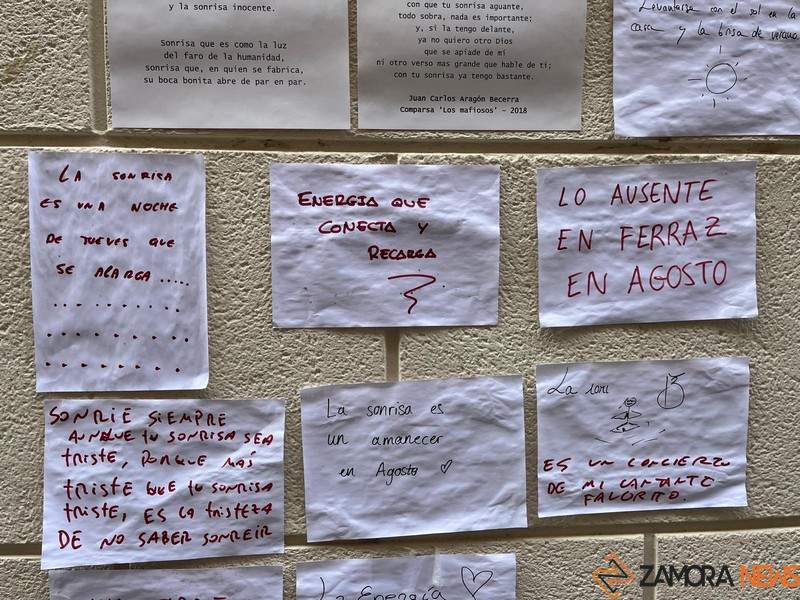 y la sonrisa inocente.
Sonrisa que es como la luz
del faro de la humanidad,
sonrisa que, en quien se fabrica,
su boca bonita abre de par en par.
con que tu sonrisa aguante,
todo sobra, nada es importante;
y, si la tengo delante,
ya no quiero otro Dios
que se apiade de mi
ni otro verso mas grande que hable de ti;
con tu sonrisa ya tengo bastante.
Juan Carlos Aragón Becerra
Comparsa 'Los mafiosos' - 2018
Levantarse con el sol en la
cara y la brisa de verano
LA SONRISA
ES UNA NOCHE
DE JUEVES QUE
SE ALARGA .....
ENERGIA QUE
CONECTA Y
RECARGA
LO AUSENTE
EN FERRAZ
EN AGOSTO
SONRIE SIEMPRE
AUNQUE tU SONRISA SEA
tRISTE, PORQUE MAS
tRISTE QUE tU SONRISA
tRISTE, ES LA tRISTEZA
DE NO SABER SONREIR
La sonrisa es
un amanecer
en Agosto ♡
La
ES UN CONCIERTO
DE MI CANTANTE
FAVORITO.
La Energía
ZAMORA NEWS